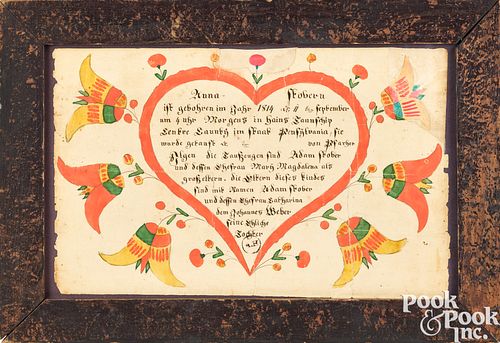 Anna Stobern
ist gebohren im Jahr 1814 september
am 4 uhr Morgens in hains Taunschip
Centre Caunty im staat Pensylvania, sie
wurde getauft von Pfarher
Ilgen die Taufzeugen sind Adam stober
und dessen Ehefrau Mary Magdalena als
großeltern, die Eltern dieses kindes
sind mit Namen Adam stober
und dessen Ehefrau Catharina
dem Johannes Weber
seine Ehliche
Tochter
Pook
& Pook
Inc.